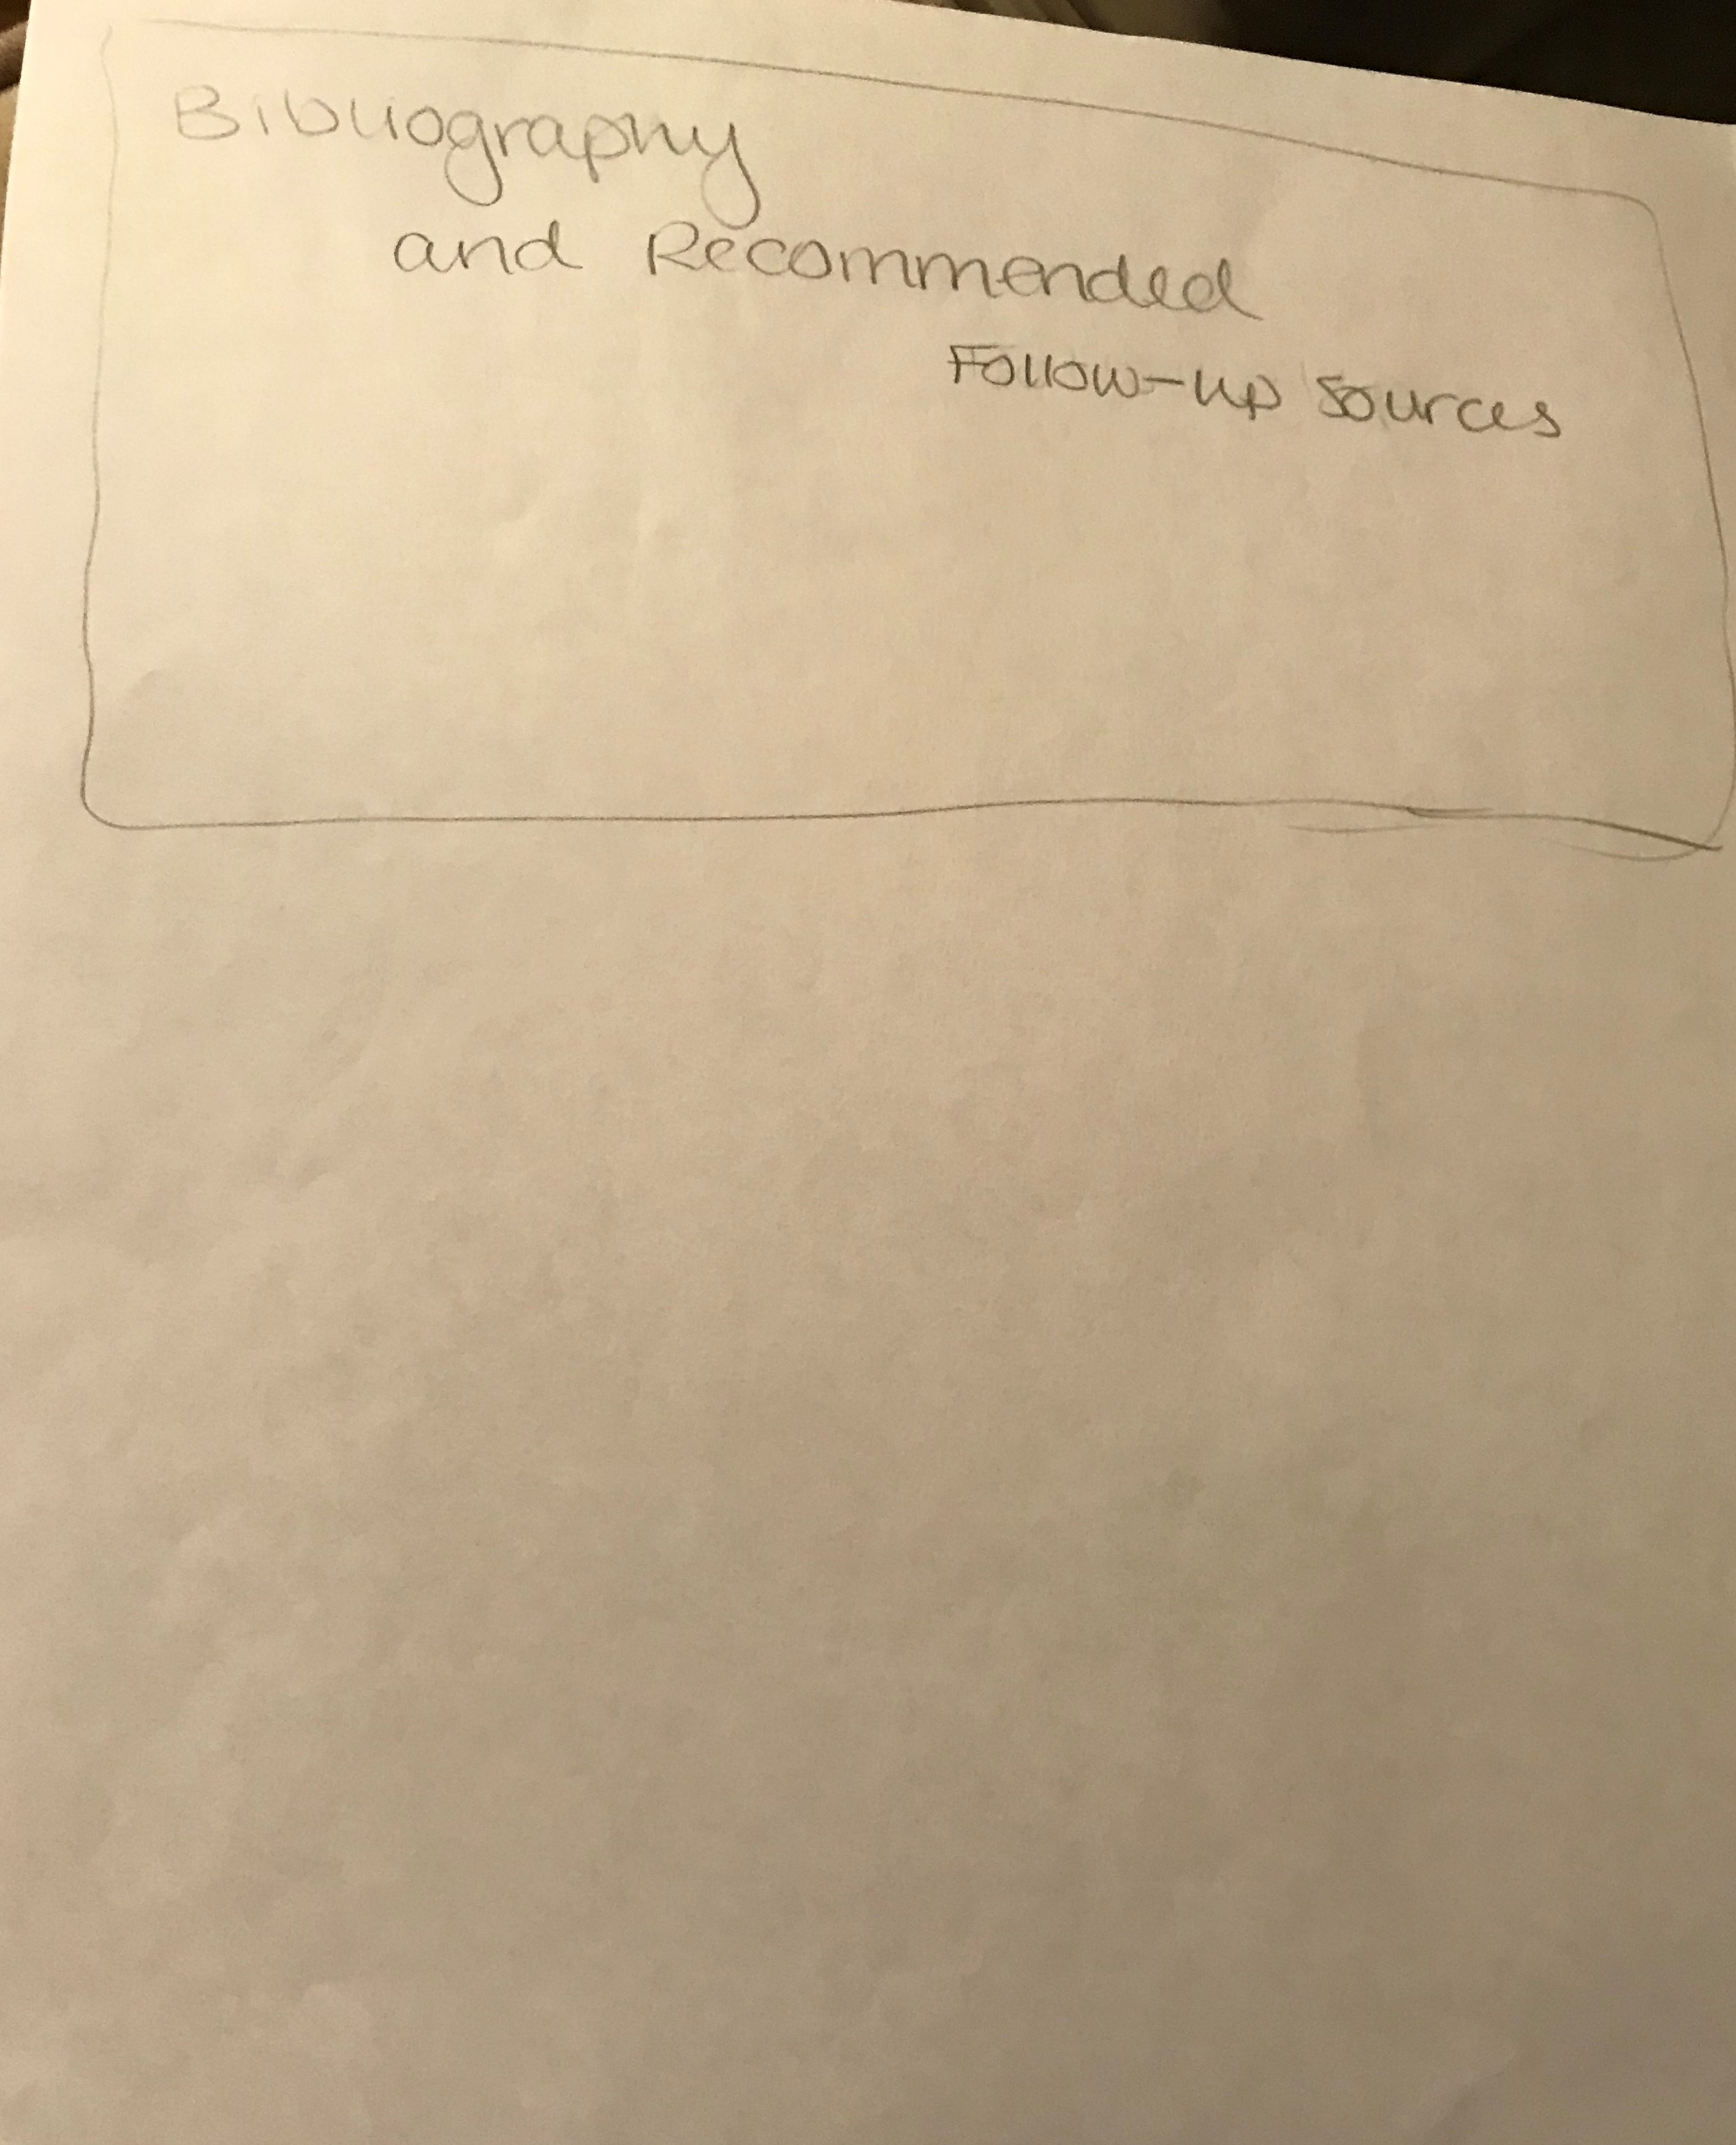 Bibliography
and Recommended
Follow-up Sources